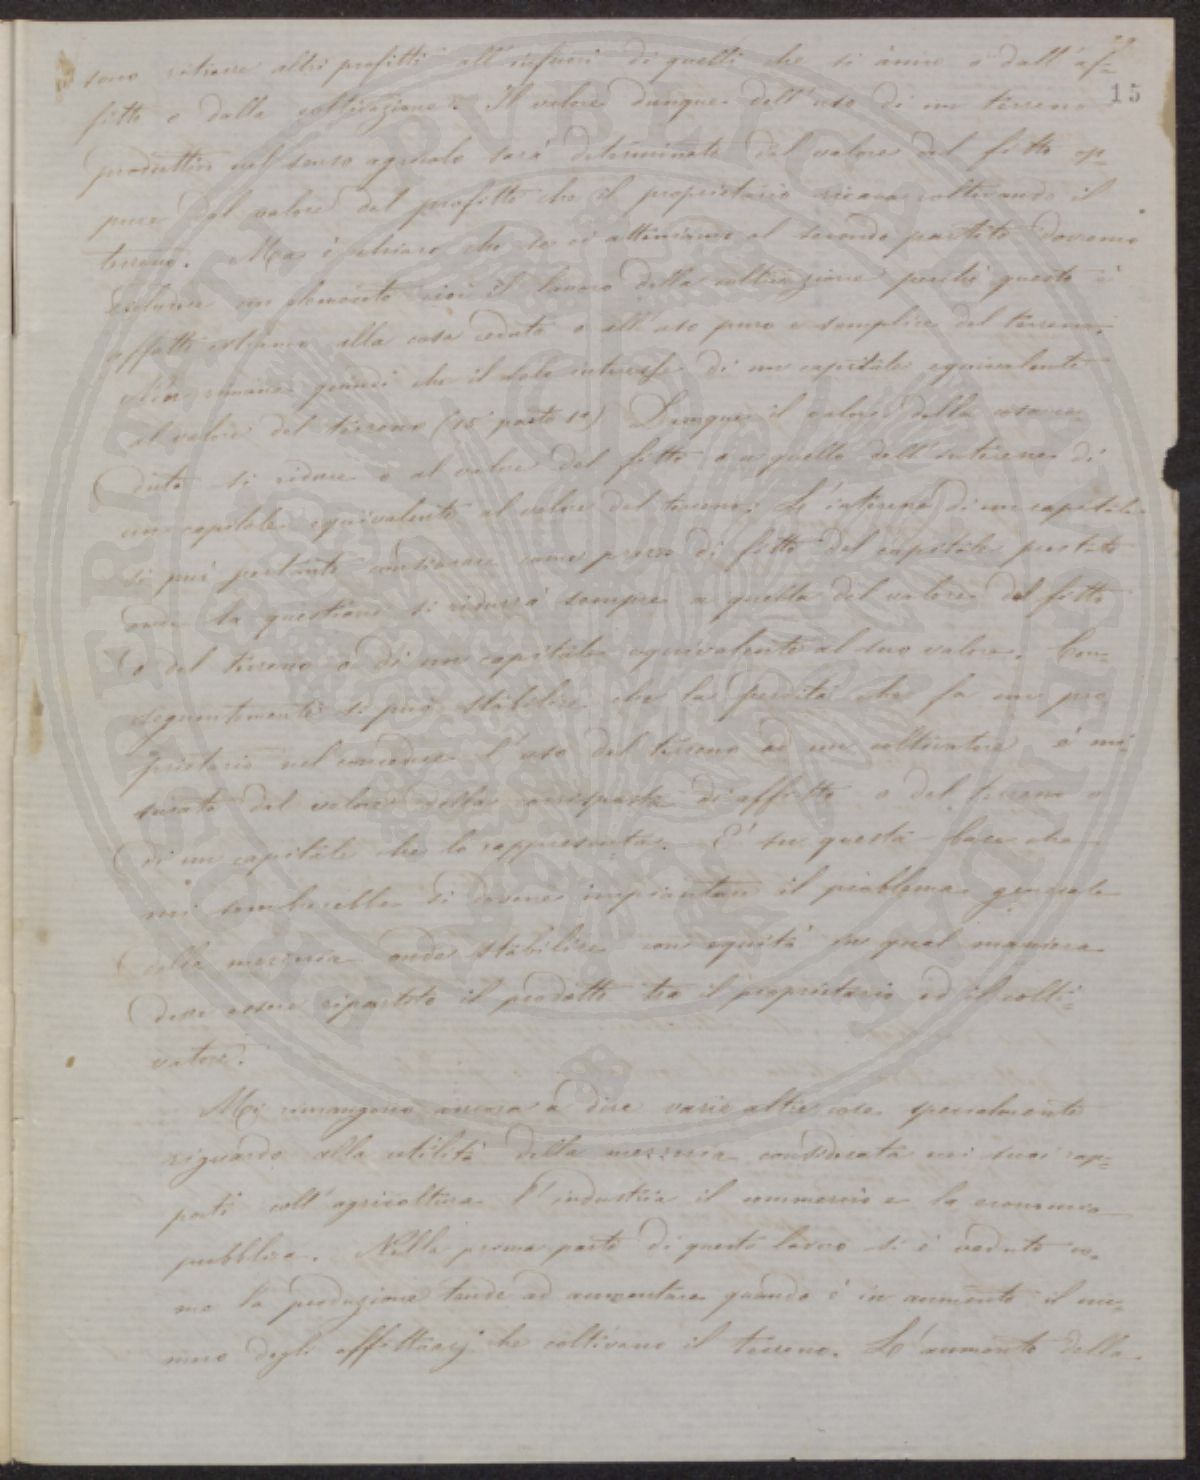 29
15
sono ritrarre altri profitti all'infuori di quelli che si ànno o dall'af=
fitto o dalla coltivazione. Il valore dunque dell'uso di un terreno
produttivo nel senso agricolo sarà determinato dal valore del fitto op=
pure dal valore del profitto che il proprietario ricava coltivando il
terreno. Ma è chiaro che se ci atteniamo al secondo partito dovremo
escludere un elemento cioè il lavoro della coltivazione perché questo è
affatto estraneo alla cosa ceduta o all'uso puro e semplice del terreno;
non rimane quindi che il solo interesse di un capitale equivalente
al valore del terreno (15 parte 1a) Dunque il valore della cosa ce
duta si riduce o al valore del fitto o a quello dell'interesse di
un capitale equivalente al valore del terreno; L'interesse di un capitale
si può pertanto considerare come prezzo di fitto del capitale prestato
onde la questione si ridurrà sempre a quella del valore del fitto
o del terreno o di un capitale equivalente al suo valore. Con=
seguentemente si può stabilire che la perdita che fa un pro
prietario nel concedere l'uso del terreno ad un coltivatore è mi=
surata dal valore della corrisposta di affitto o del terreno o
di un capitale che lo rappresenta. E' su questa base che
mi sembrerebbe si dovesse impiantare il problema generale
della mezzeria onde stabilire con equità in qual maniera
deve essere ripartito il prodotto tra il proprietario ed il colti=
vatore.
Mi rimangono ancora a dire varie altre cose specialmente
riguardo alla utilità della mezzeria considerata nei suoi rap=
porti coll'agricoltura l'industria il commercio e la economia
pubblica. Nella prima parte di questo lavoro si è veduto co=
me la produzione tende ad aumentare quando è in aumento il nu=
mero degli affittarj che coltivano il terreno. L'aumento della